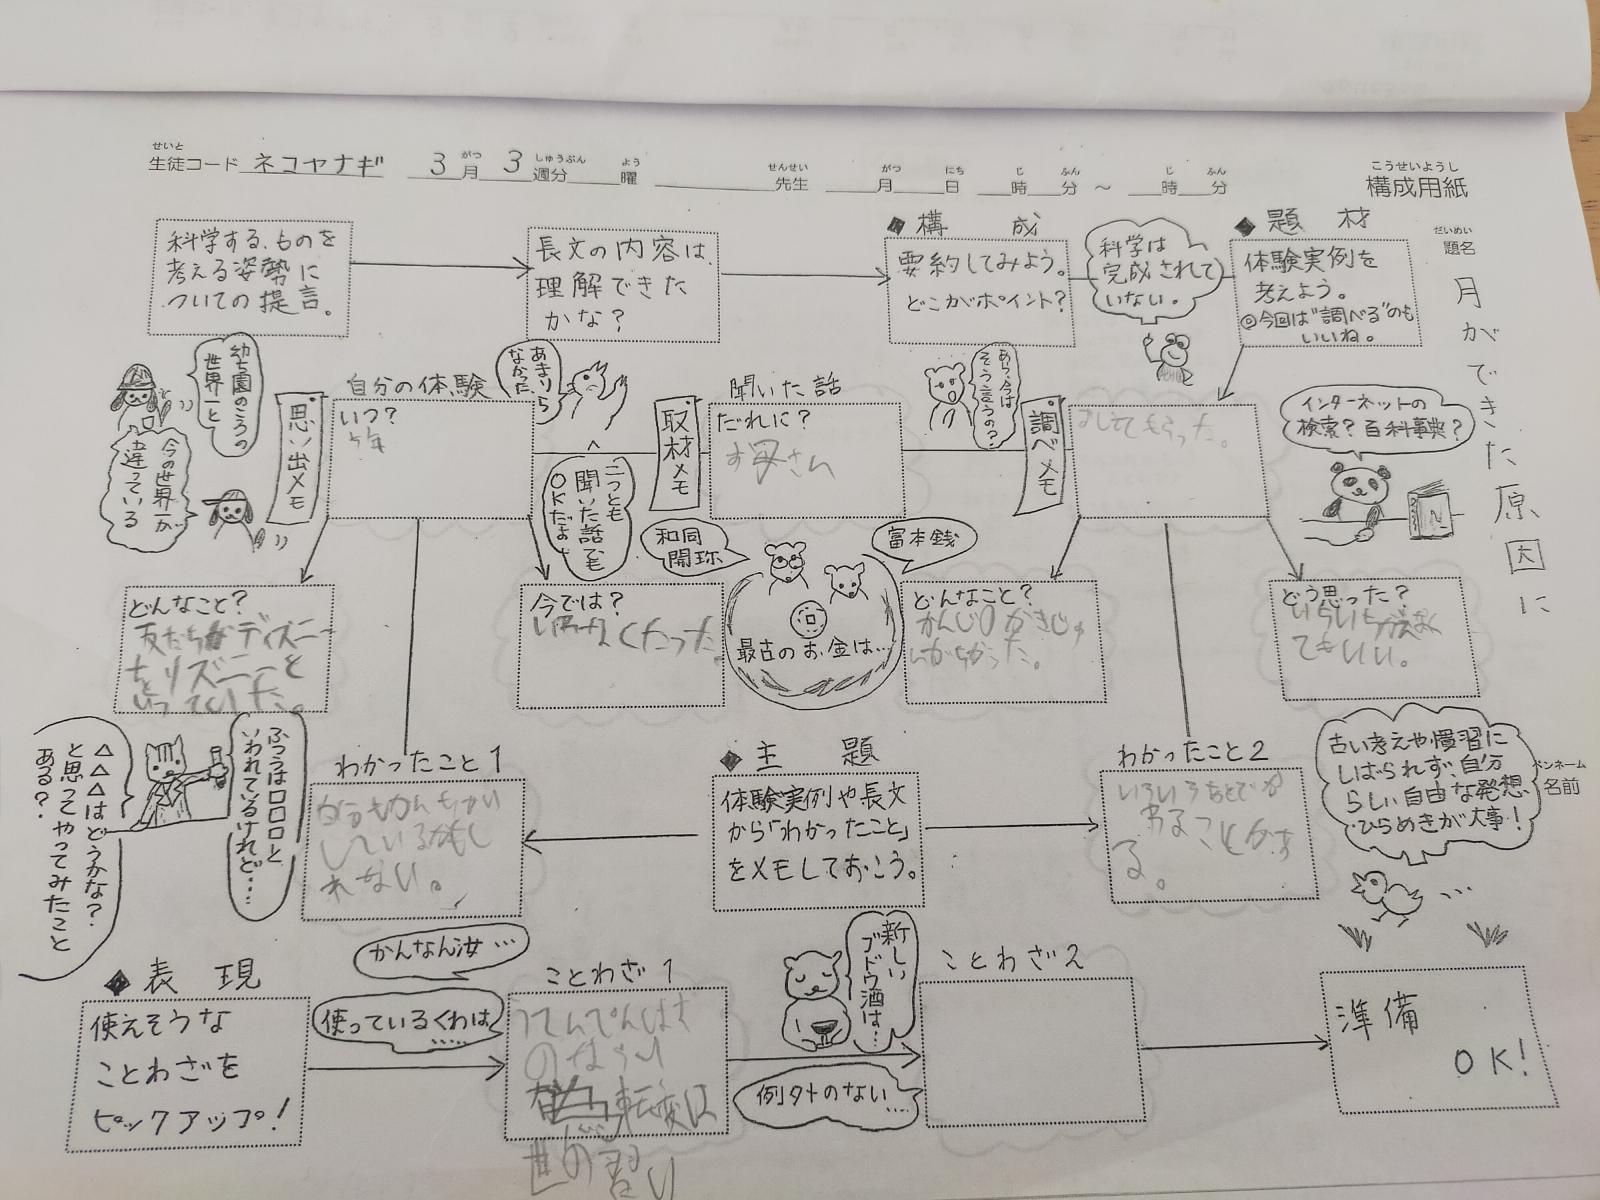 せいと
生徒コード ネコヤナギ 3月 3週分 曜 先生 月 日 時 分 ～ 時 分
がつ しゅうぶん よう せんせい がつ にち じ ふん じ ふん
こうせいようし
構成用紙
だいめい
題名
月ができた原因に
ペンネーム
名前
科学する、ものを
考える姿勢に
ついての提言。
長文の内容は、
理解できた
かな？
◆構成
要約してみよう。
どこがポイント？
科学は
完成されて
いない。
◆題材
体験実例を
考えよう。
◎今回は“調べる”のも
いいね。
幼ち園のころの
世界一と
今の世界一が
違っている
思い出メモ
自分の体験
いつ？
あまりら
なかった
二つとも
聞いた話でも
OKだよ
取材メモ
聞いた話
だれに？
お母さん
あら、今は
そう言うの？
調べメモ
してもらった。
インターネットの
検索？百科事典？
どんなこと？
友だちがディズニー
今では？
和同
開珎
富本銭
最古のお金は…
どんなこと？
どう思った？
てもいい。
ふつうは□□□□と
いわれているけれど…
△△△はどうかな？
と思ってやってみたこと
ある？
わかったこと1
しているかもし
れない。
◆主題
体験実例や長文
から「わかったこと」
をメモしておこう。
わかったこと2
る。
古い考えや慣習に
しばられず、自分
らしい自由な発想、
ひらめきが大事！
…
◆表現
使えそうな
ことわざを
ピックアップ！
かんなん汝…
使っているくわは
……
ことわざ1
転変は
世の習い
新しい
ブドウ酒は…
例外のない…
ことわざ2
準備
OK！